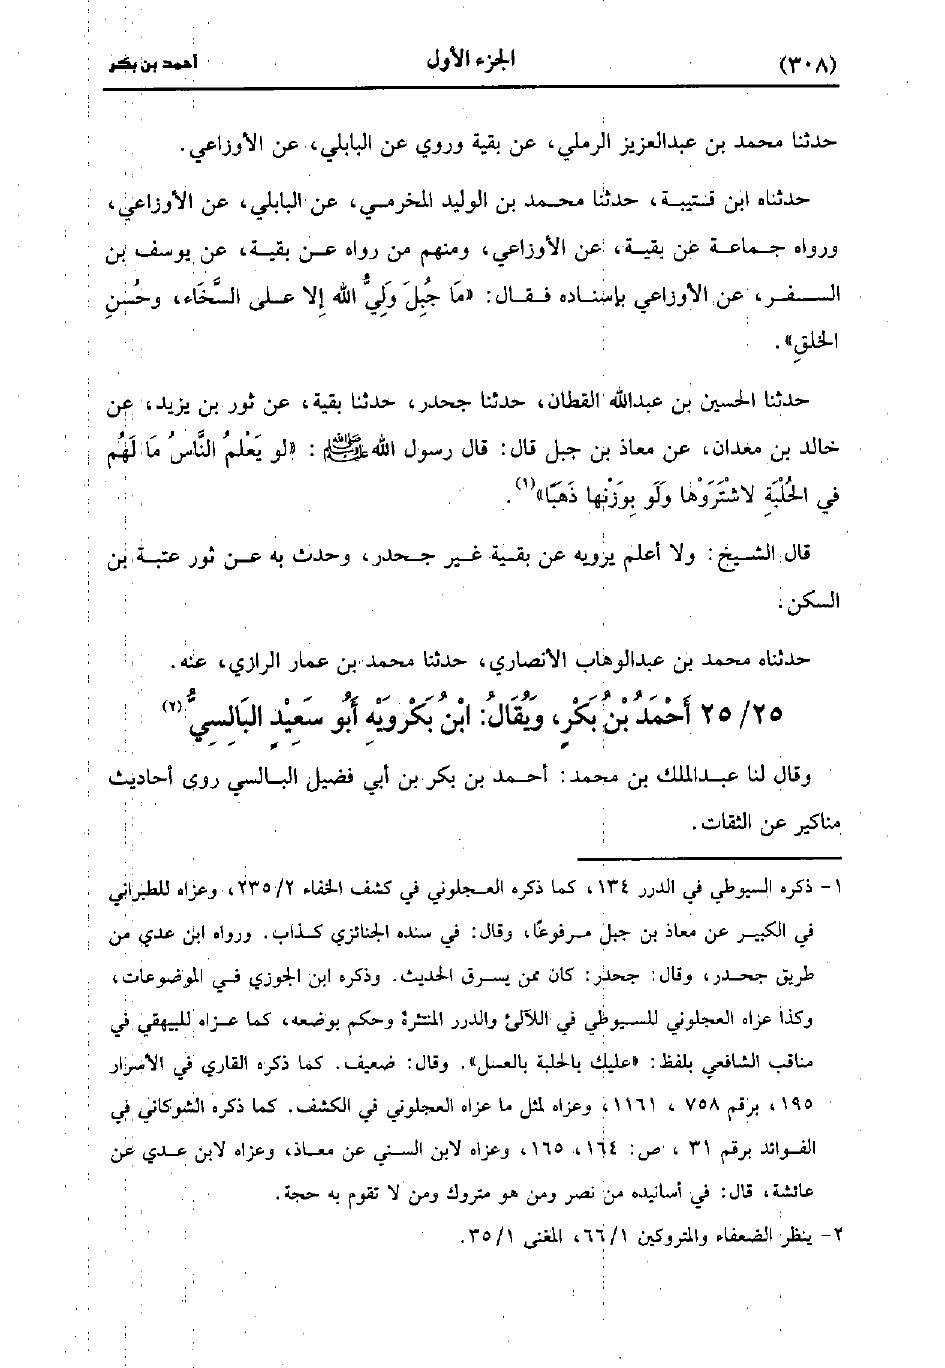 (٣٠٨) الجزء الأول أحمد بن بكر
حدثنا محمد بن عبدالعزيز الرملي، عن بقية وروي عن البابلي، عن الأوزاعي.
حدثناه ابن قتيبة، حدثنا محمد بن الوليد المخرمي، عن البابلي، عن الأوزاعي،
ورواه جماعة عن بقية، عن الأوزاعي، ومنهم من رواه عن بقية، عن يوسف بن
السفر، عن الأوزاعي بإسناده فقال: «مَا جُبِلَ وَلِيُّ الله إلا على السَّخَاء، وحُسْنِ
الخلقِ».
حدثنا الحسين بن عبدالله القطان، حدثنا جحدر، حدثنا بقية، عن ثور بن يزيد، عن
خالد بن معدان، عن معاذ بن جبل قال: قال رسول الله ﷺ: «لو يَعْلمُ النَّاسُ مَا لَهُم
في الحُلْبَةِ لاشْتَرَوْها وَلَو بِوَزْنِها ذَهَبًا»(١).
قال الشيخ: ولا أعلم يرويه عن بقية غير جحدر، وحدث به عن ثور عتبة بن
السكن:
حدثناه محمد بن عبدالوهاب الأنصاري، حدثنا محمد بن عمار الرازي، عنه.
٢٥/٢٥ أَحْمَدُ بْنُ بَكْرٍ، وَيُقَالُ: ابْنُ بَكْرَوَيْهِ أَبُو سَعِيْدٍ البَالِسِيُّ(٢)
وقال لنا عبدالملك بن محمد: أحمد بن بكر بن أبي فضيل البالسي روى أحاديث
مناكير عن الثقات.
١- ذكره السيوطي في الدرر ١٣٤، كما ذكره العجلوني في كشف الخفاء ٢٣٥/٢، وعزاه للطبراني
في الكبير عن معاذ بن جبل مرفوعًا، وقال: في سنده الجنائزي كذاب. ورواه ابن عدي من
طريق جحدر، وقال: جحدر: كان ممن يسرق الحديث. وذكره ابن الجوزي في الموضوعات،
وكذا عزاه العجلوني للسيوطي في اللآلئ والدرر المنتثرة وحكم بوضعه، كما عزاه للبيهقي في
مناقب الشافعي بلفظ: «عليك بالحلبة بالعسل». وقال: ضعيف. كما ذكره القاري في الأسرار
١٩٥، برقم ٧٥٨، ١١٦١، وعزاه لمثل ما عزاه العجلوني في الكشف. كما ذكره الشوكاني في
الفوائد برقم ٣١، ص: ١٦٤، ١٦٥، وعزاه لابن السني عن معاذ، وعزاه لابن عدي عن
عائشة، قال: في أسانيده من نصر ومن هو متروك ومن لا تقوم به حجة.
٢- ينظر الضعفاء والمتروكين ٦٦/١، المغنى ٣٥/١.